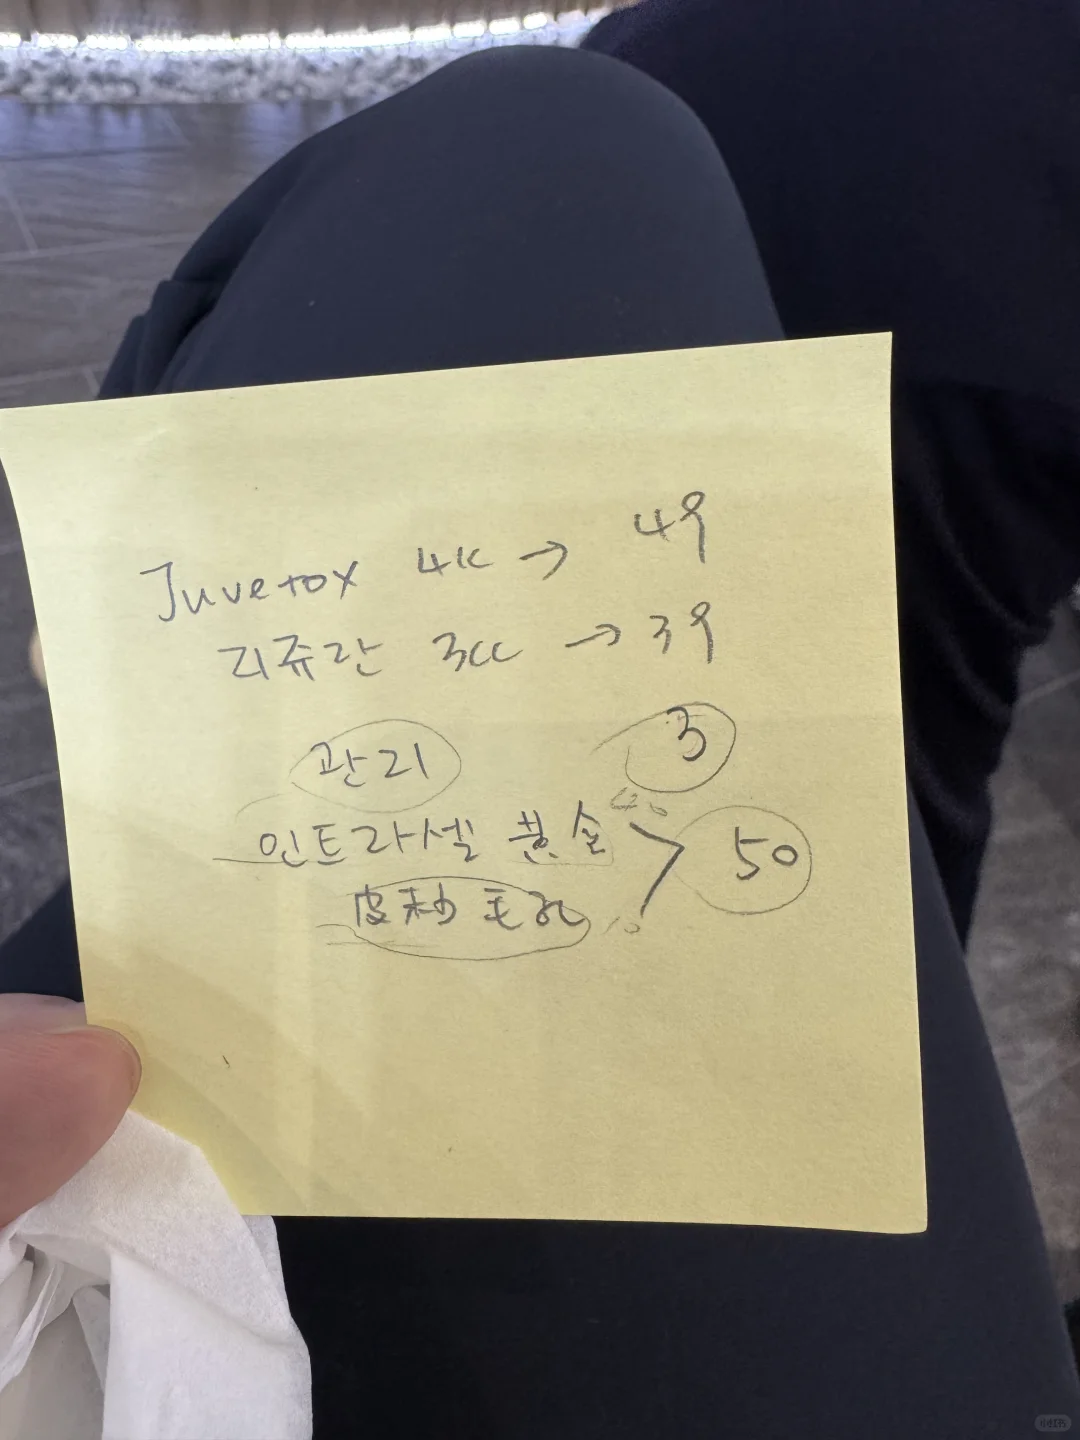 Juvetox 4cc → 49
리쥬란 3cc → 39
관리 3
인트라셀 黄金 40
皮秒 毛孔 10
> 50
小红书